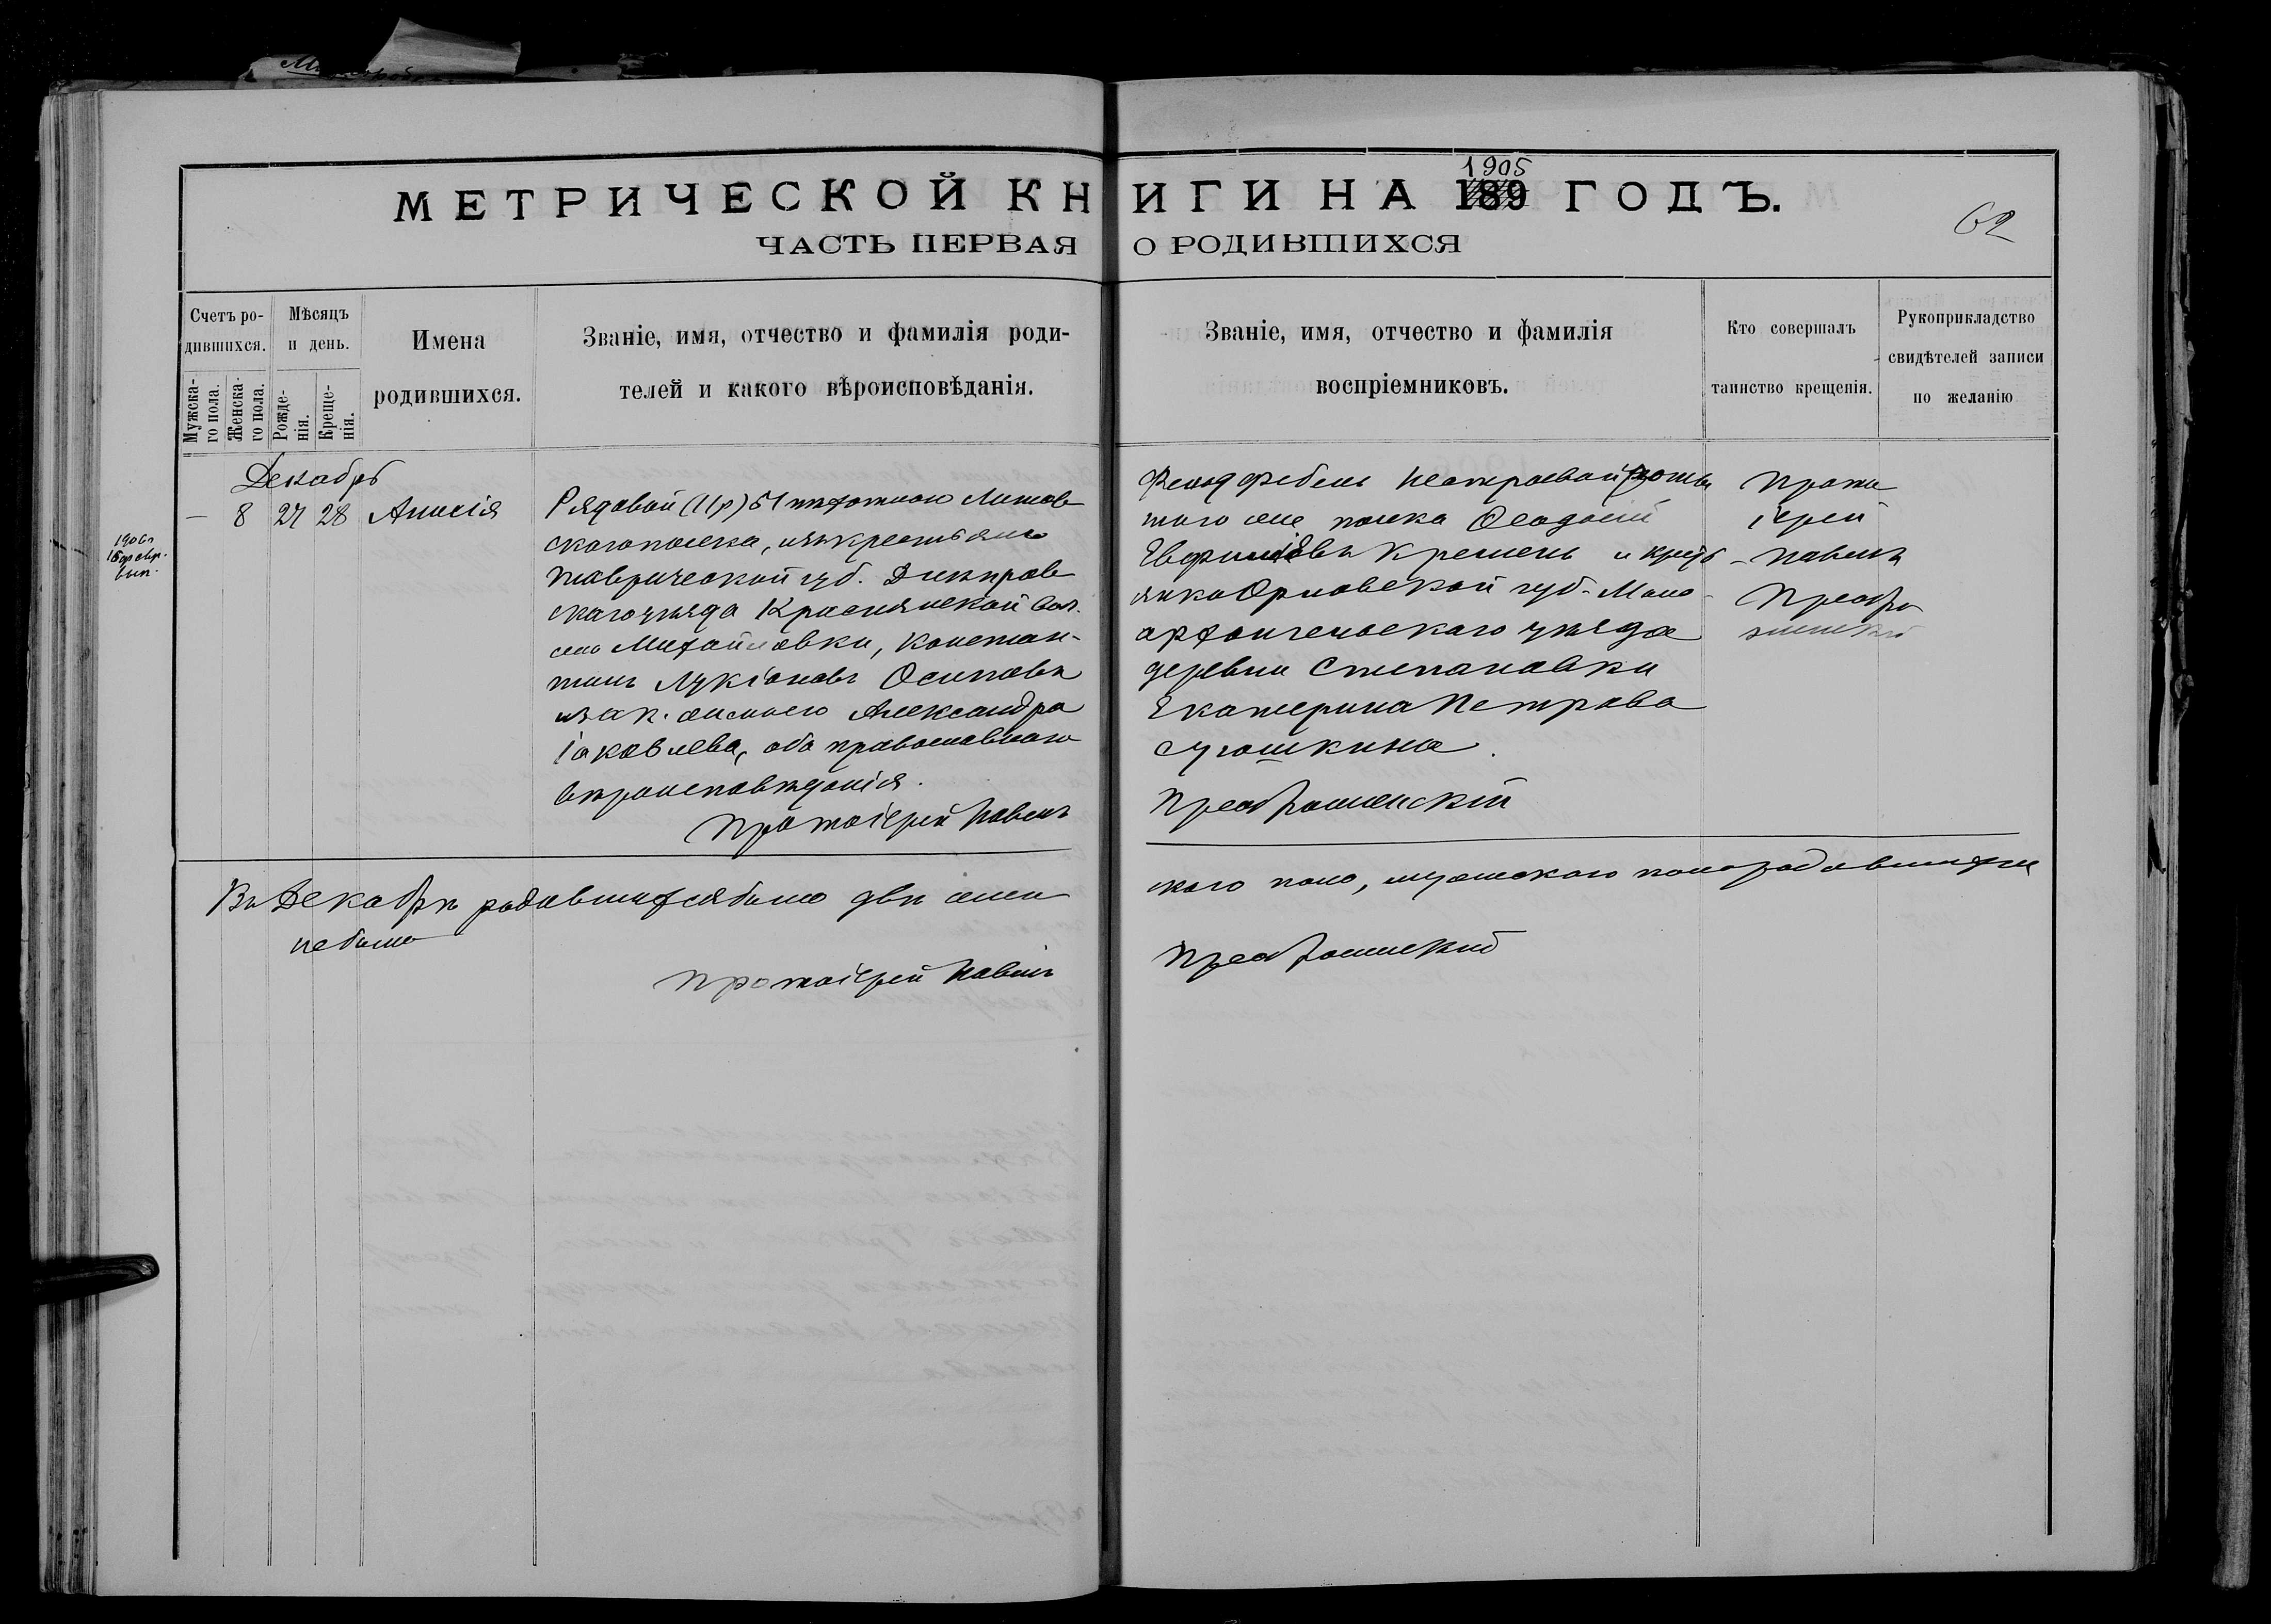 МЕТРИЧЕСКОЙ КНИГИ НА 1905 ГОДЪ.
ЧАСТЬ ПЕРВАЯ О РОДИВШИХСЯ
62
Счетъ родившихся.
Мужскаго пола.
Женскаго пола.
Мѣсяцъ и день.
Рожденія.
Крещенія.
Имена
родившихся.
Званіе, имя, отчество и фамилія роди-
телей и какого вѣроисповѣданія.
Званіе, имя, отчество и фамилія
воспріемниковъ.
Кто совершалъ
таинство крещенія.
Рукоприкладство
свидѣтелей записи
по желанію
Декабрь
— 8 27 28 Анисія
1906 г.
Рядовой 51 пѣхотнаго Литов
скаго полка, изъ крестьянъ
Таврической губ. Днѣпров
скаго уѣзда Краснянской вол.
села Михайловки, Констан-
тинъ Лукіановъ Осиповъ
и зак. жена его Александра
Іаковлева, оба православнаго
вѣроисповѣданія.
Протоіерей Павелъ
Фельдфебель Нестроевой роты
того же полка Ѳеодосій
Евфиміевъ Кремень и крест
янка Орловской губ. Мало
архангельскаго уѣзда
деревни Степановки
Екатерина Петрова
Преображенскій
Прото
іерей
Павелъ
Преобра
женскій
Въ Декабрѣ родившихся было двѣ женскаго пола, мужскаго пола родившихся
не было
Протоіерей Павелъ Преображенскій